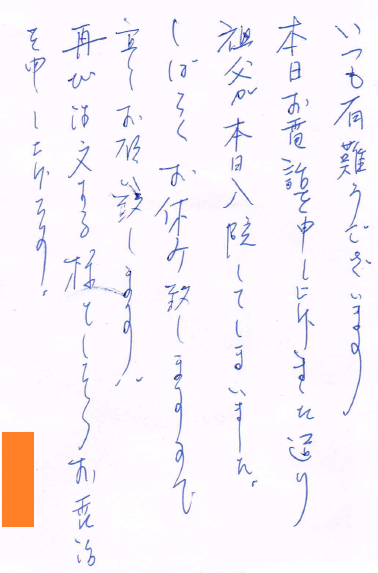 いつも有難うございます。
本日お電話を申し上げました通り
祖父が本日入院してしまいました。
しばらくお休み致しますので
宜しくお願い致します。
再び注文する様でしたらお電話
を申し上げます。